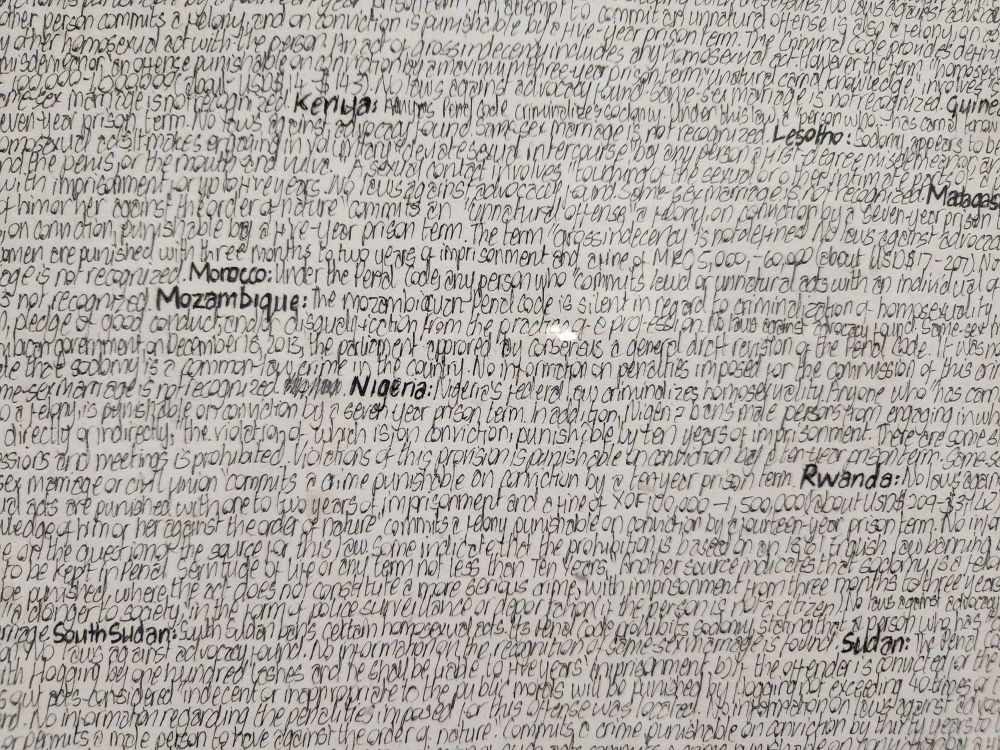 other person commits a felony, and on conviction is punishable by a five-year prison term. An attempt to commit an unnatural offense is also a felony, on
y other homosexual act with the person. An act of gross indecent includes any homosexual act. However the term "homosex
misdemeanor an offense punishable on conviction by a maximum three-year prison term; unnatural carnal knowledge, involves
No laws against advocacy found. Same-sex marriage is not recognized. Guine
me-sex marriage is not recognized. Kenya: Kenya's Penal Code criminalizes sodomy. Under this law, a person who: has carnal know
even-year prison term. No laws against advocacy found. Same-sex marriage is not recognized. Lesotho: Sodomy appears to be
omosexual acts. It makes engaging in voluntary deviate sexual intercourse by any person a first-degree misdemeanor
nd the penis, or the mouth and vulva." A sexual contact involves "touching of the sexual or other intimate parts of
with imprisonment for up to five years. No laws against advocacy found. Same-sex marriage is not recognized. Madagas
f him or her against the order of nature" commits an "unnatural" offense, a felony, on conviction by a seven-year prison
, on conviction, punishable by a five-year prison term. The term "gross indecency" is not defined. No laws against advocac
omen are punished with three months to two years of imprisonment and a fine of 5,000-60,000 (about USD$17-207). No
age is not recognized. Morocco: Under the Penal Code any person who "commits lewd or unnatural acts with an individual of
s not recognized. Mozambique: The mozambiquan Penal Code is silent in regard to criminalization of homosexuality.
, pledge of good conduct, and/or disqualification from the practice of a profession. No laws against advocacy found. Same-sex
government on December 16, 2013, the parliament approved by consensus a general draft revision of the Penal Code. It was no
te that sodomy is a common-law crime in the country. No information on penalties imposed for the commission of this crim
me-sex marriage is not recognized. Nigeria: Nigeria's Federal law criminalizes homosexuality. Anyone who "has carn
o a felony is punishable on conviction by a seven year prison term. In addition, Nigeria bans male persons from engaging in wh
directly or indirectly," the violation of which is, on conviction, punishable by ten years of imprisonment. There are some s
ssions and meetings is prohibited. Violations of this provision is punishable on conviction by a ten-year prison term. Same-s
sex marriage or civil union commits a crime punishable on conviction by a ten-year prison term. Rwanda: No laws again
ual acts are punished with one to two years of imprisonment and a fine of XOF 100,000-1,500,000 (about USD$ 209-$3,132
wledge of him or her against the order of nature" commits a felony punishable on conviction by a fourteen-year prison term. No info
e on the question of the source for this law, some indicate that the prohibition is based on an 1861 English law barring
to be kept in Penal Servitude of Life or any term not less than Ten Years. Another source indicates that sodomy is a felo
be punished, where the act does not constitute a more serious crime, with imprisonment from three months to three years
"a danger to society," in the form of police surveillance or deportation if the person is not a citizen. No laws against advocac
rriage South Sudan: South Sudan bans certain homosexual acts. Its Penal Code prohibits sodomy, stating that a person who has ca
No laws against advocacy found. No information on the recognition of same sex marriage is found. Sudan: The Penal
th flogging by one hundred lashes and he shall be liable to five years' imprisonment. by. If the offender is convicted for the
such acts considered indecent or inappropriate to the public morals will be punished by flogging not exceeding 40 times or
rd. No information regarding the penalties imposed for this offense was located. No information on laws against advoc
or permits a male person to have against the order of nature. Commits a crime punishable on conviction by thirty years to